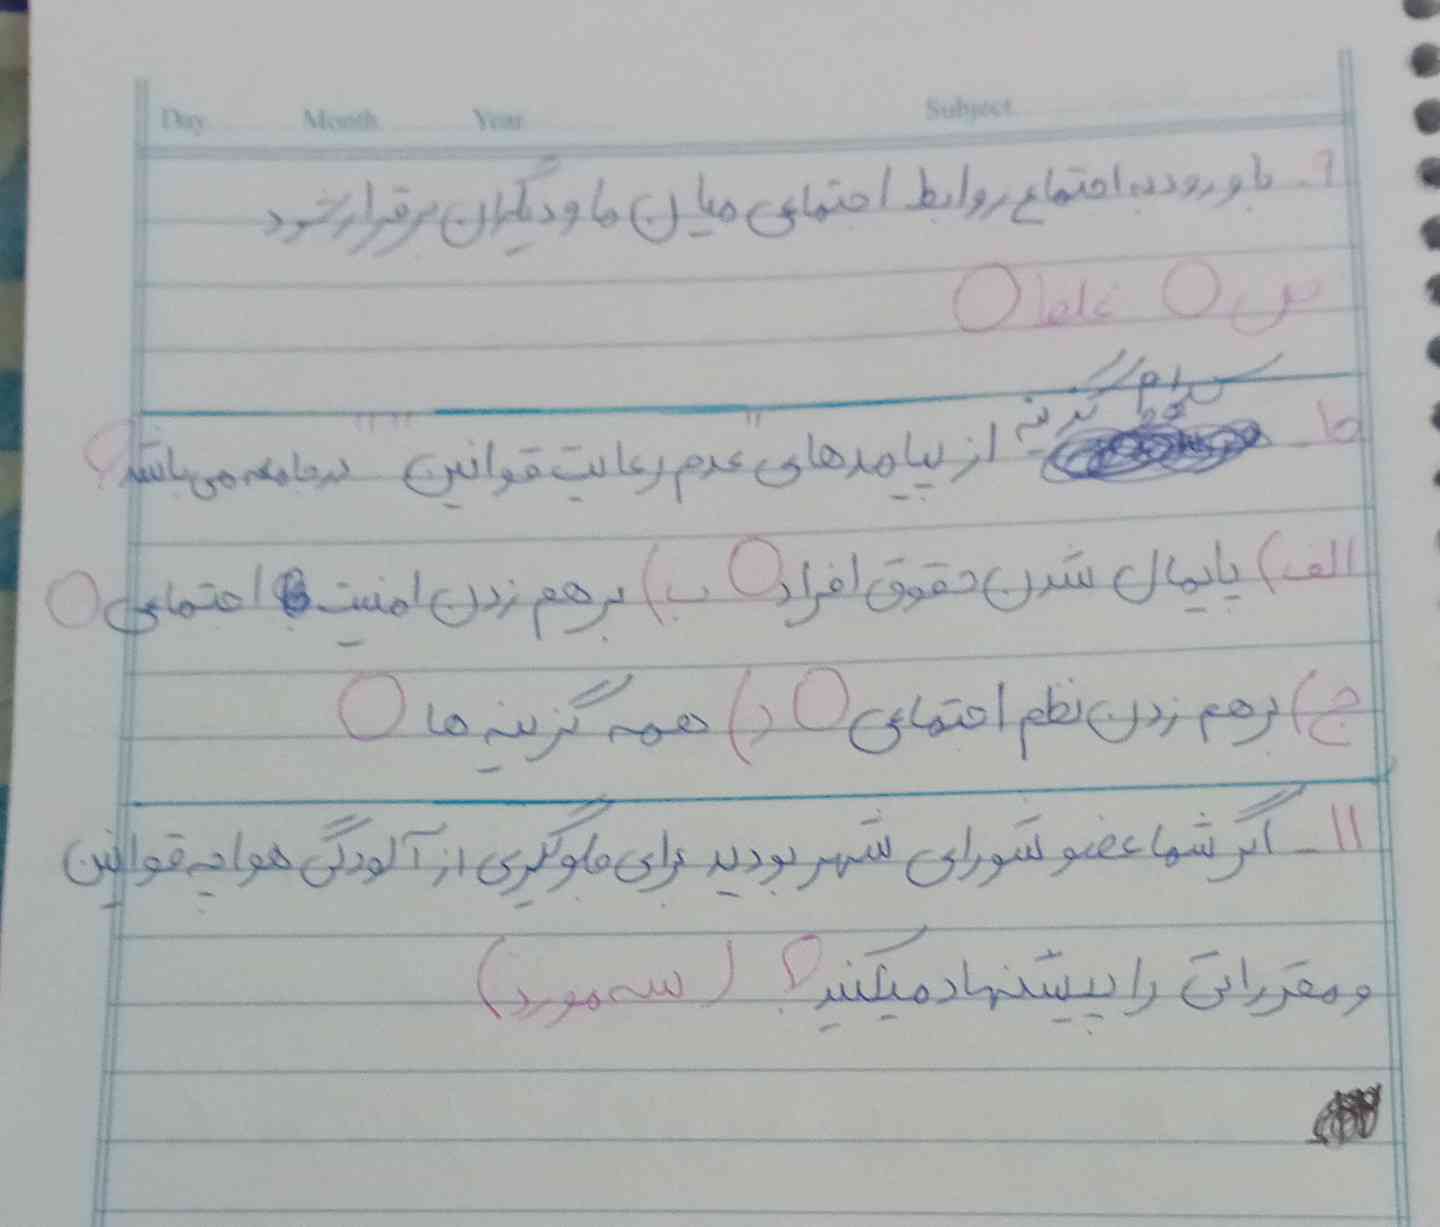 Day Month Year Subject
۹- با ورود به اجتماع روابط اجتماعی میان ما و دیگران برقرار شود
ص غلط
کدام گزینه
۱۰- از پیامدهای عدم رعایت قوانین در جامعه می باشد؟
الف) پایمال شدن حقوق افراد ب) برهم زدن امنیت اجتماعی
ج) برهم زدن نظم اجتماعی د) همه گزینه ها
۱۱- اگر شما عضو شورای شهر بودید برای جلوگیری از آلودگی هوا چه قوانین
و مقرراتی را پیشنهاد میکنید؟ (سه مورد)